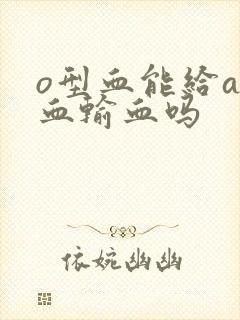 o型血能给a
血输血吗
依婉幽幽